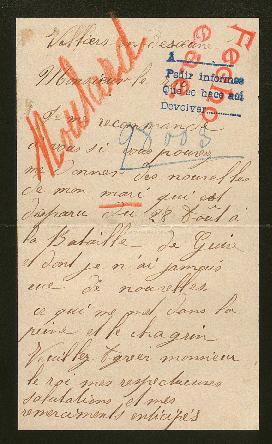 Villiers en
Monsieur le
Fecho
Mouhard
A
Pedir informes
Que se hace así
Devolver
Je me recommande
a vous si vous pouvez
me donner des nouvelles
de mon mari qui est
disparu du 28 Août à
la Bataille de Guise
et dont je n'ai jamais
eue de nouvelles
ce qui me met dans la
peine et le chagrin
Veuillez Agreer monsieur
le roi mes respectueuses
salutations et mes
remerciments enticipés